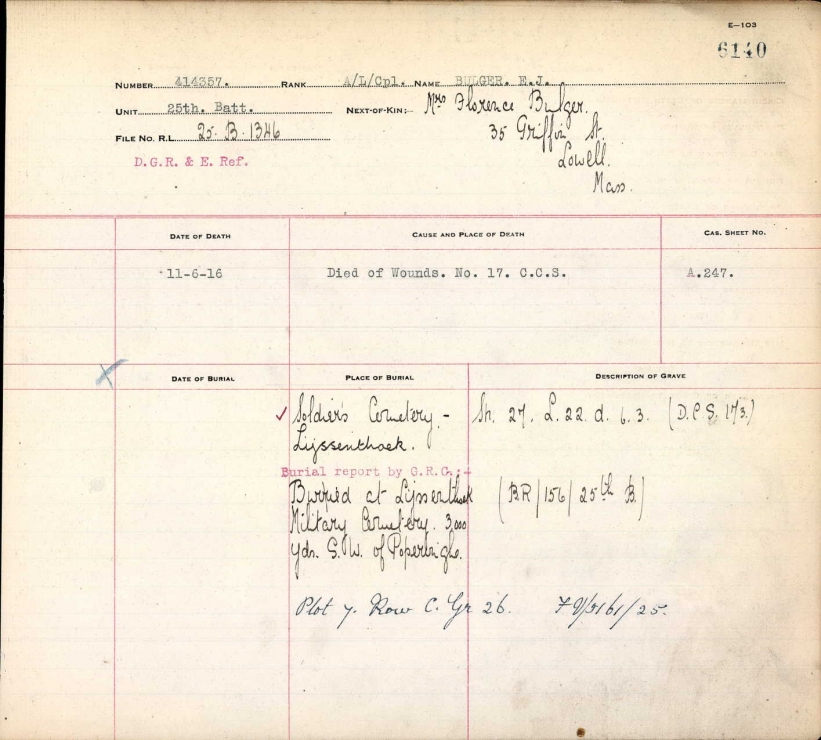 E—103
6140
NUMBER 414357. RANK A/L/Cpl. NAME BULGER. E.J.
UNIT 25th. Batt. NEXT-OF-KIN:- Mrs Florence Bulger.
35 Griffin St.
FILE NO. R.L. 25. B. 1346
Lowell.
D.G.R. & E. Ref.
Mass.
DATE OF DEATH CAUSE AND PLACE OF DEATH CAS. SHEET NO.
11-6-16 Died of Wounds. No. 17. C.C.S. A.247.
DATE OF BURIAL PLACE OF BURIAL DESCRIPTION OF GRAVE
Soldier's Cemetery.- Sh. 27. L.22.d. 6.3. (D.C.S. 173.)
Lijssenthoek.
Burial report by G.R.C.:-
Burried at Lijssenthoek (BR/156/25th B.)
Military Cemetery. 3,000
yds. S.W. of Poperinghe.
Plot 7. Row C. Gr 26.